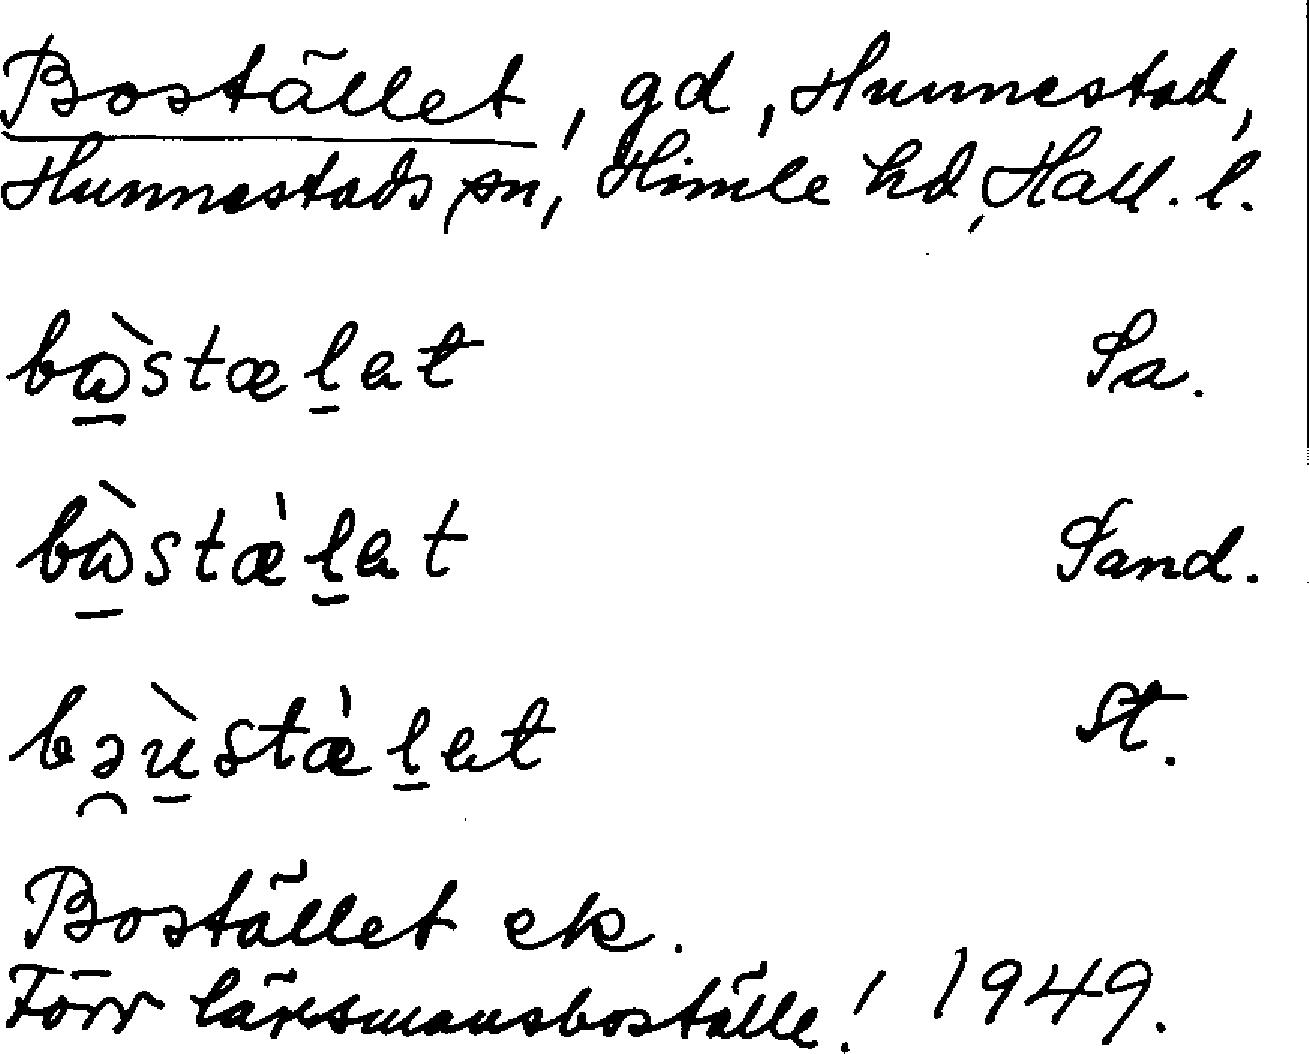 Bostället, gd, Hunnestad,
Hunnestads sn, Himle hd, Hall. l.
bɷ̠̀stæl̠ət Sa.
bɷ̠̀stæ̀l̠ət Sand.
bə̯ù̠stæ̀l̠ət St.
Bostället ek.
Förr länsmansboställe! 1949.